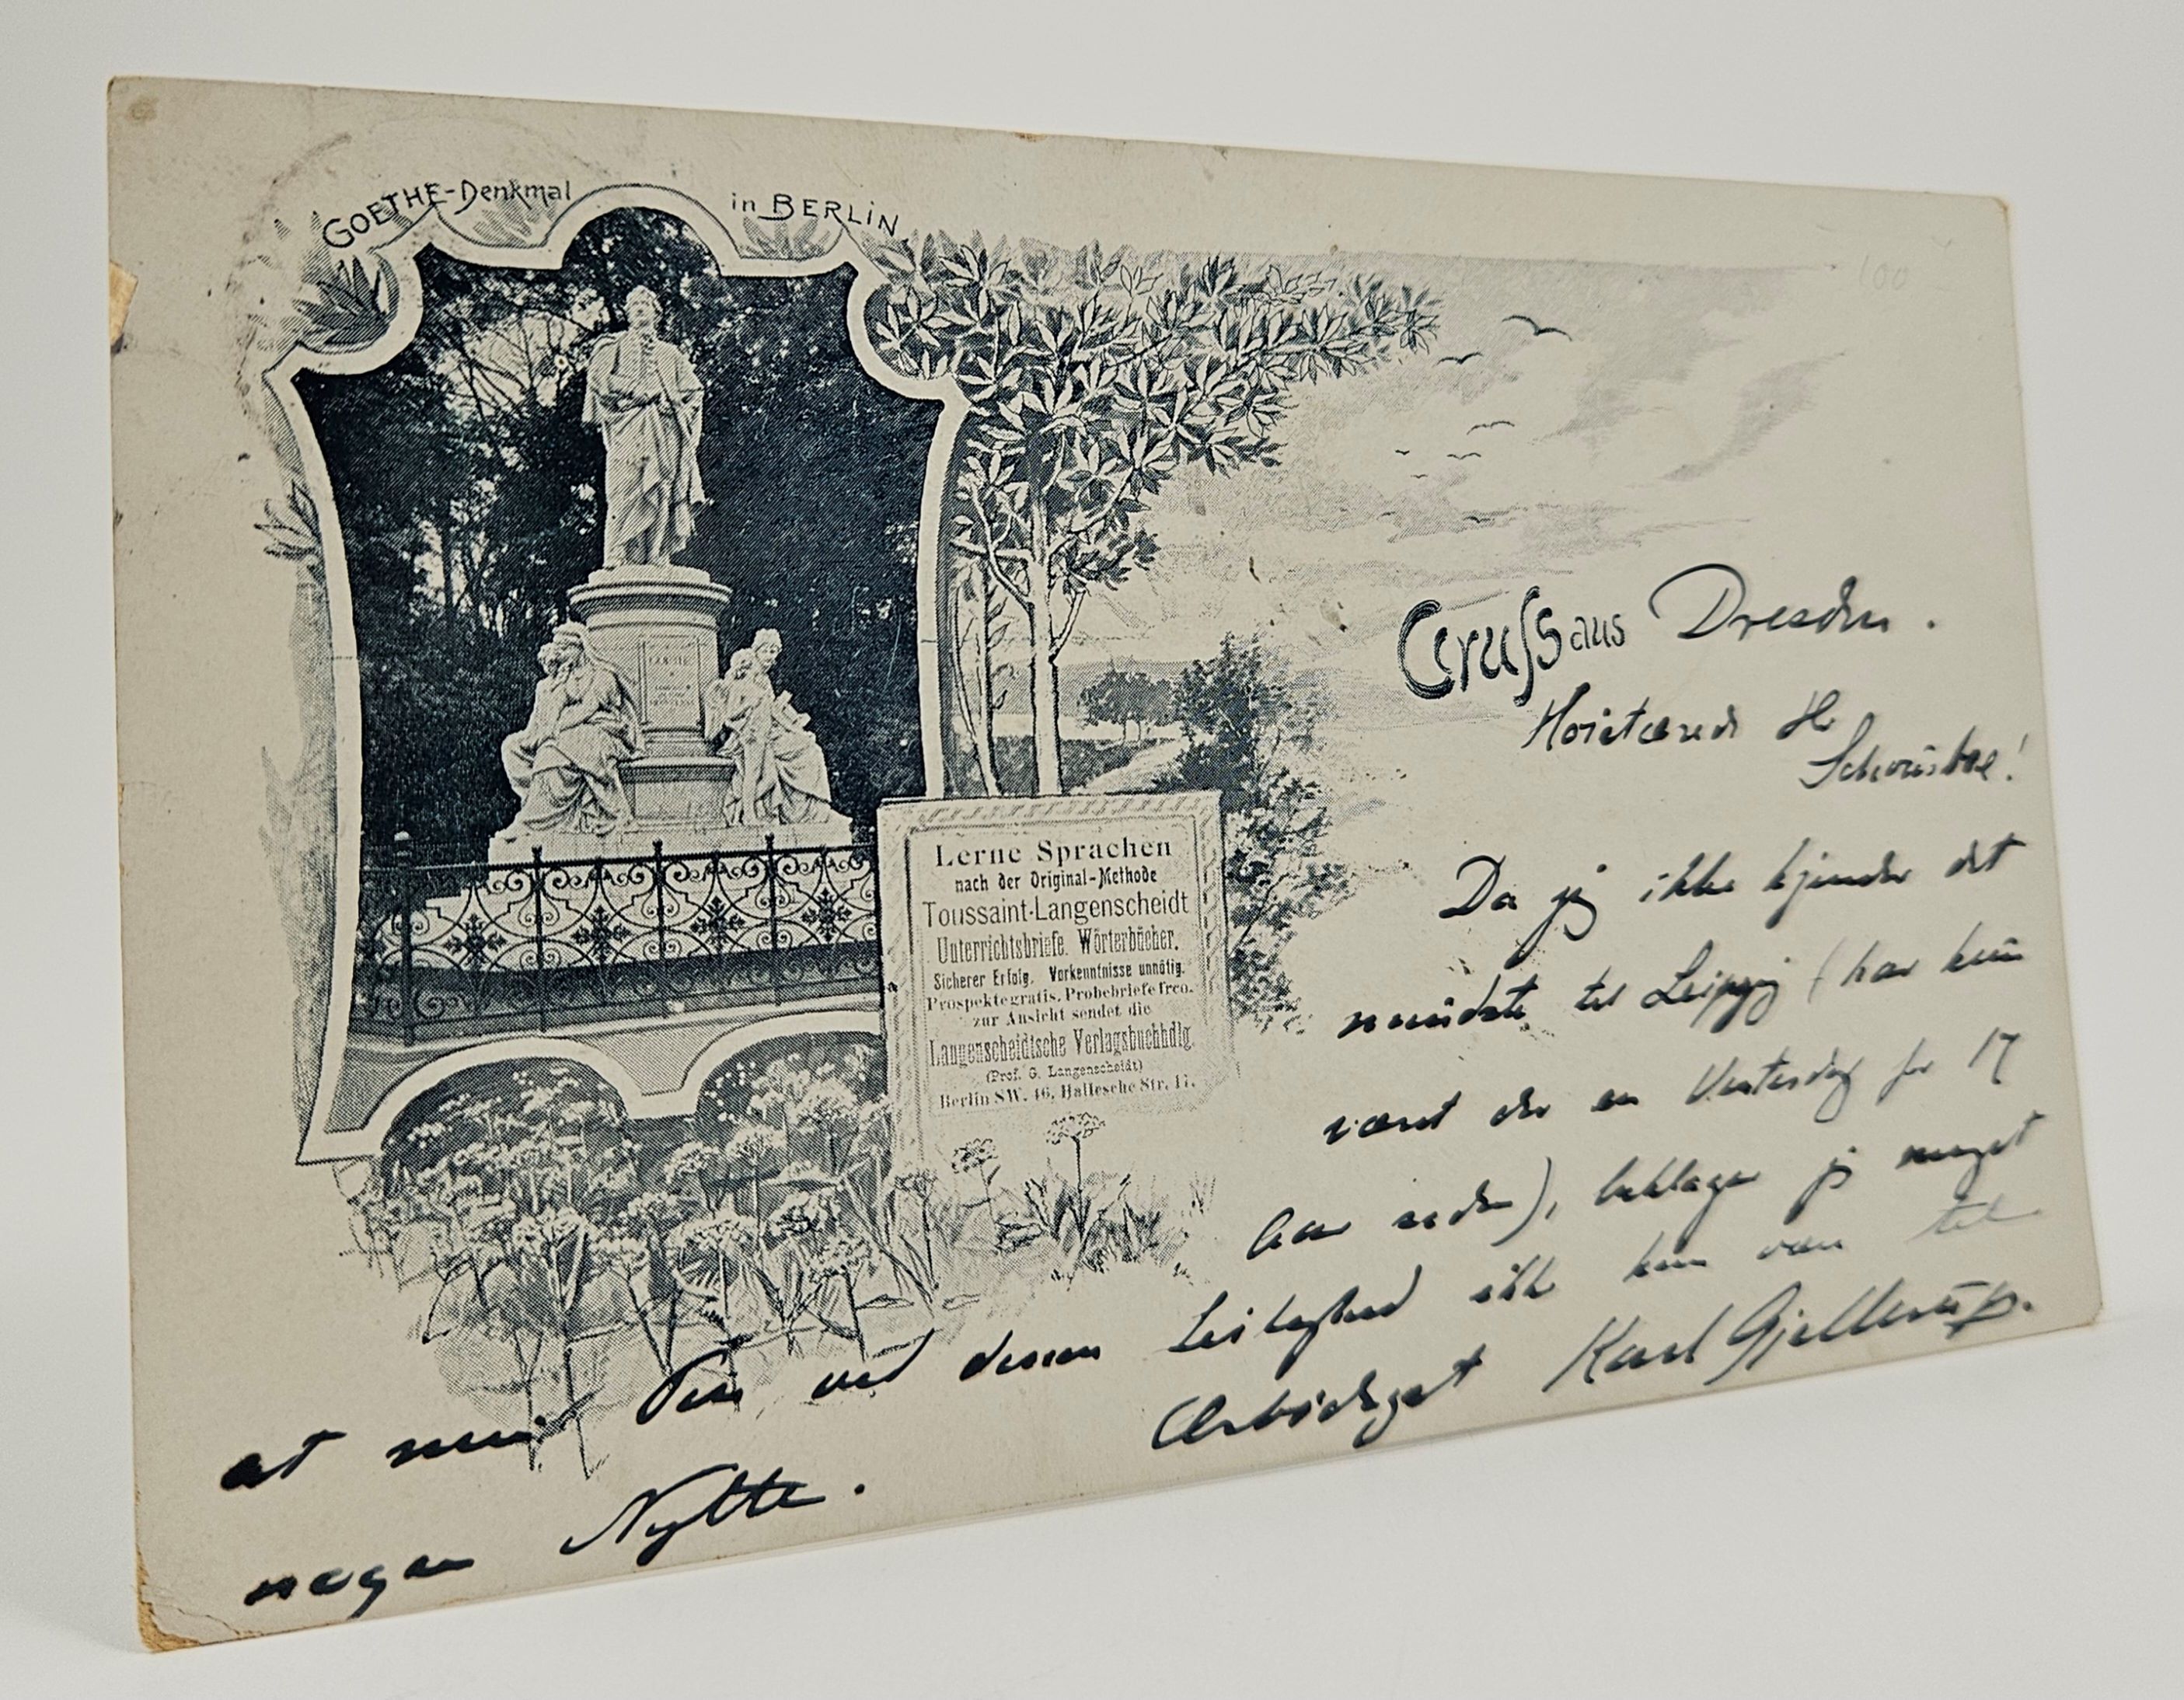 GOETHE-Denkmal in BERLIN.
100
Gruss aus Dresden.
Høistærede Hr
Schousboe!
Da jeg ikke kjender det
mindste til Leipzig (har kun
været der en Vintersdag for 17
Aar siden), beklager jeg meget
at min Pen ved denne Leilighed ikke kan være til
nogen Nytte.
Ærbødigst Karl Gjellerup.
GOETHE
Lerne Sprachen
nach der Original-Methode
Toussaint-Langenscheidt
Unterrichtsbriefe. Wörterbücher.
Sicherer Erfolg. Vorkenntnisse unnötig.
Prospekte gratis. Probebriefe frco.
zur Ansicht sendet die
Langenscheidtsche Verlagsbuchhdlg.
(Prof. G. Langenscheidt)
Berlin SW. 46, Hallesche Str. 17.